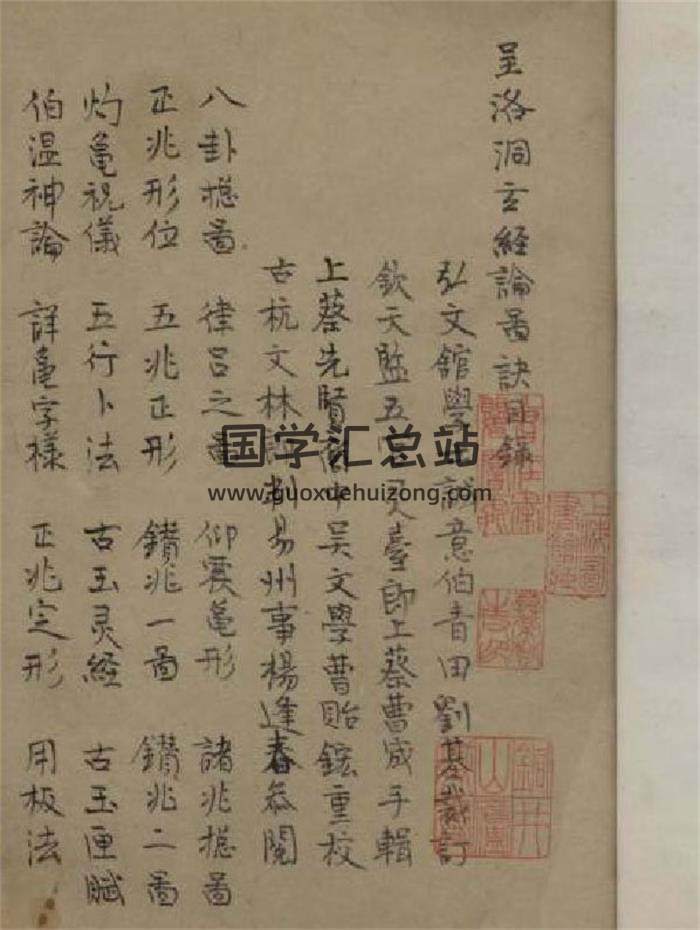 呈洛洞玄経論啚訣目録
弘文舘學士誠意伯青田劉基裁訂
欽天監五官灵臺郎上蔡曹咸手輯
上蔡先賢裔中吴文學曹貽鋐重校
古杭文林郎判易州事楊逢春叅閲
八卦揔啚 律吕之啚 仰爂亀形 諸兆揔啚
正兆形位 五兆正形 鑚兆一啚 鑚兆二啚
灼亀祝儀 五行卜法 古玉灵経 古玉匣賦
伯温神論 詳亀字様 正兆定形 用板法
国学汇总站
www.guoxuehuizong.com